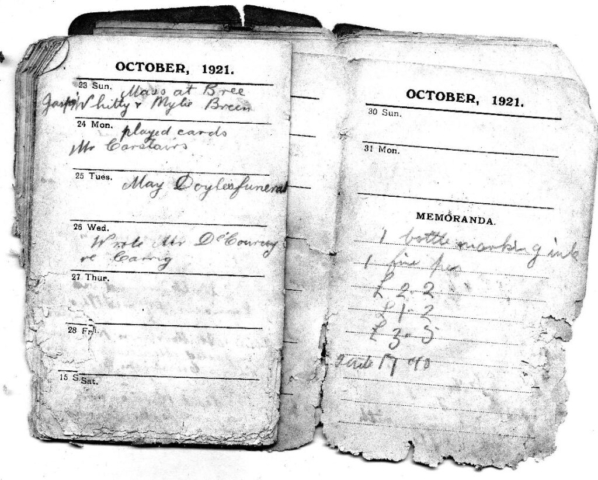 OCTOBER, 1921.
23 Sun. Mass at Bree
Whitty & Mylie Breen
24 Mon. played cards
Mr Carstairs
25 Tues. May Doyles funeral
26 Wed.
Wrote Mr DeCourcy
re Carrig
27 Thur.
28 Fri.
Sat.
OCTOBER, 1921.
30 Sun.
31 Mon.
MEMORANDA.
1 bottle marking ink
1
£ 2-2
£ 1-2
£ 3-5